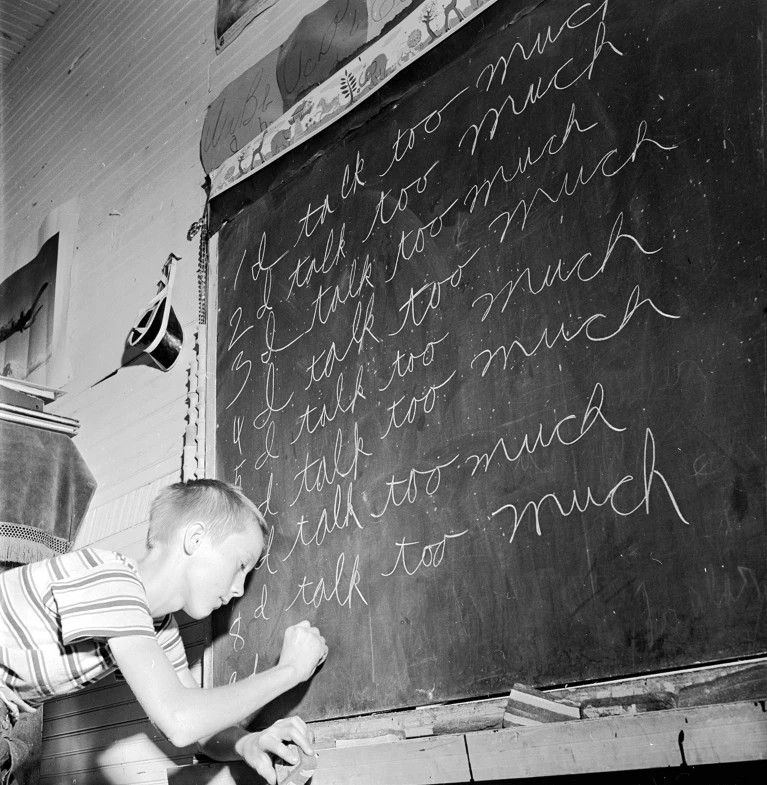 1 I talk too muc
2 I talk too much
3 I talk too much
4 I talk too much
5 I talk too much
I talk too much
I talk too much
8 I talk too much